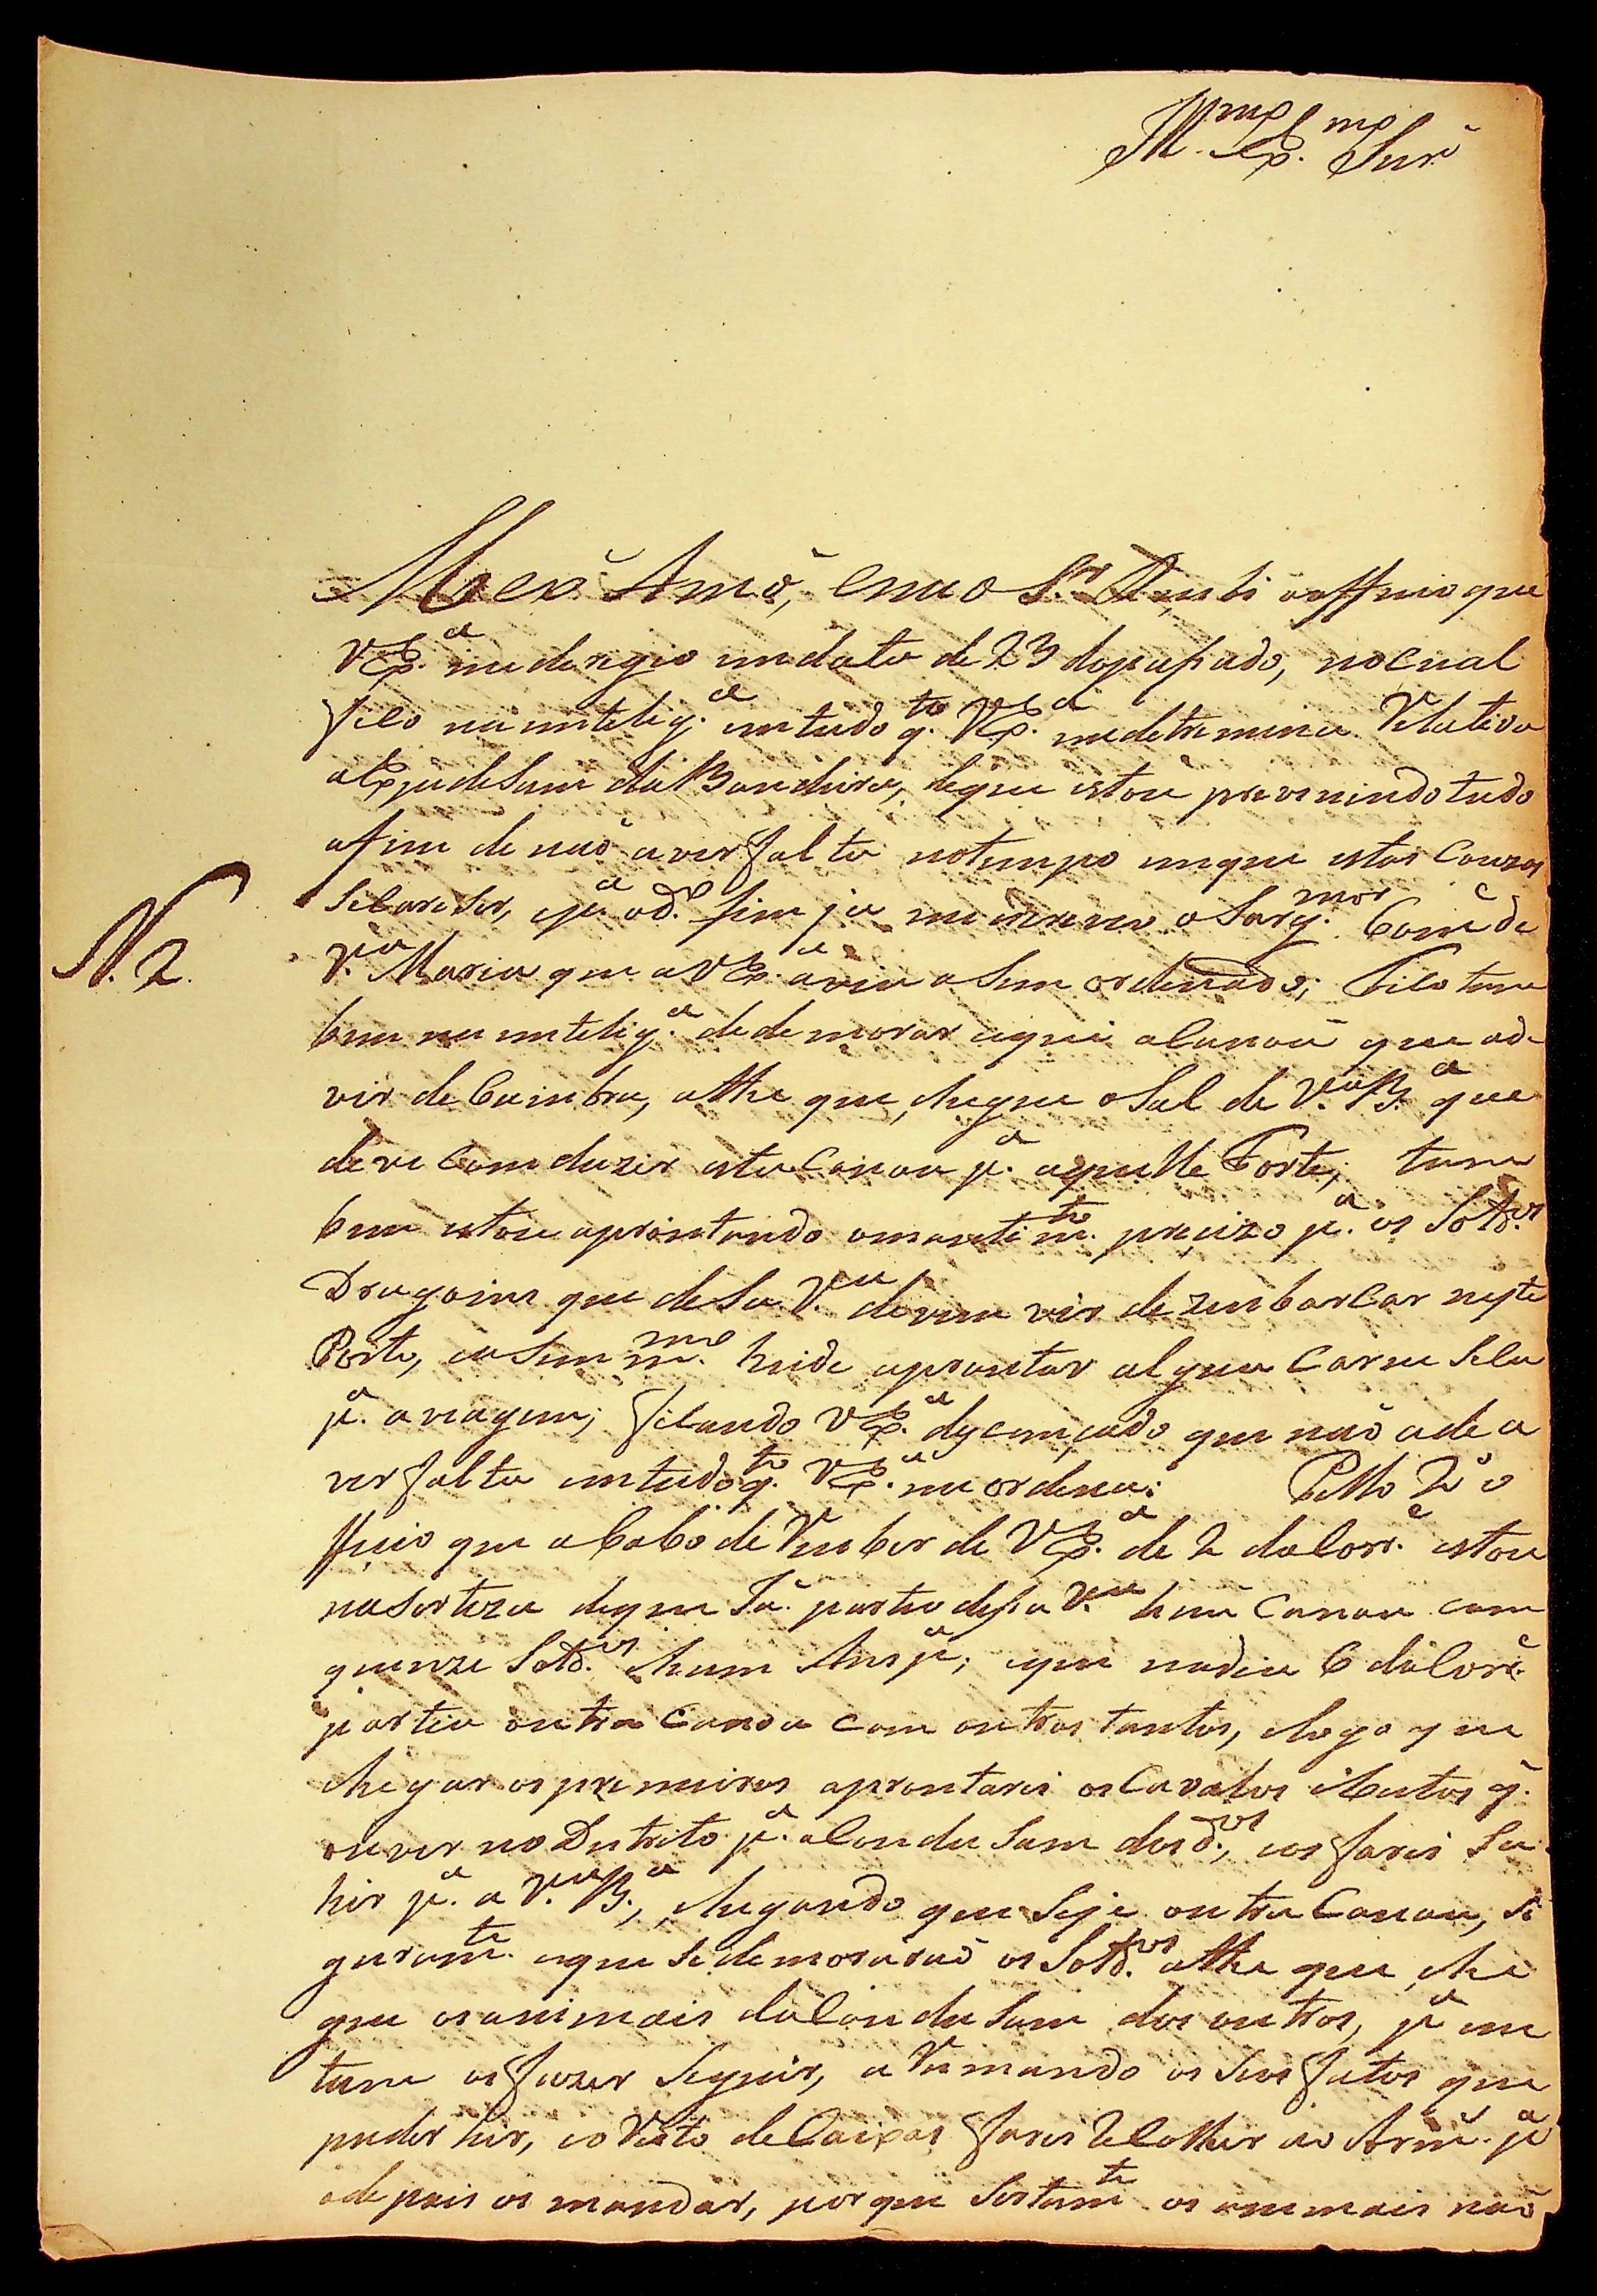 Ill.mo Ex.mo Snr.
Meu Amo, e meu S.r Ресеbi o offisio que
V Ex.a me deregio em data de 23 do pasado, no cual
fico na intelig.a em tudo q.to V Ex.a me detremina Relativo
a Expedesam da Bandeira, de que estou prevenindo tudo
afim de não aver falta no tempo em que estas couzas
se careser, e p.a o d.o fim ja me escreveo o Sarg.mor Com.e de
V.a Maria que a V Ex.a avia asim ordenado; Fico tam
N. 2.
bem na intelig.a de demorar aqui a canoa que ade
vir de Coimbra, athe que chegue o Sal de V.a B.a que
deve comduzir esta canoa p.a aquelle Forte; tam
bem estou aprontando o mantim.to precizo p.a os Sold.os
Dragoins que desa V.a devem vir dezenbarcar neste
Porto, e asim m.mo heide aprontar algua carne seca
p.a a viagem; ficando V Ex.a descançado que não ade a
ver falta em tudo q.to V Ex.a me ordena. Pello 2.o o
ffisio que acabo de Reseber de V Ex.a de 2 do corr.e estou
na serteza de que Já partio desa V.a hua canoa com
quinze Sold.os e hum Ansp.a; e que no dia 6 do corr.e
partia outra canoa com outros tantos, e logo que
chegar os premeiros aprontarei os Cavalos e Bestas q.
ouver no Destrito p.a a condusam dos d.os, e os farei sa
hir p.a a V.a B.a, e chegando que seje outra canoa, se
guram.te aqui se demorarão os Sold.os athe que che
gue os animais da condusam dos outros, p.a en
tam os fazer seguir, aRemando os seos fatos que
puder hir, e o Resto de Caixas farei Recolher ao Arm.m p.a
adepois os mandar, porque sertam.te os animais não